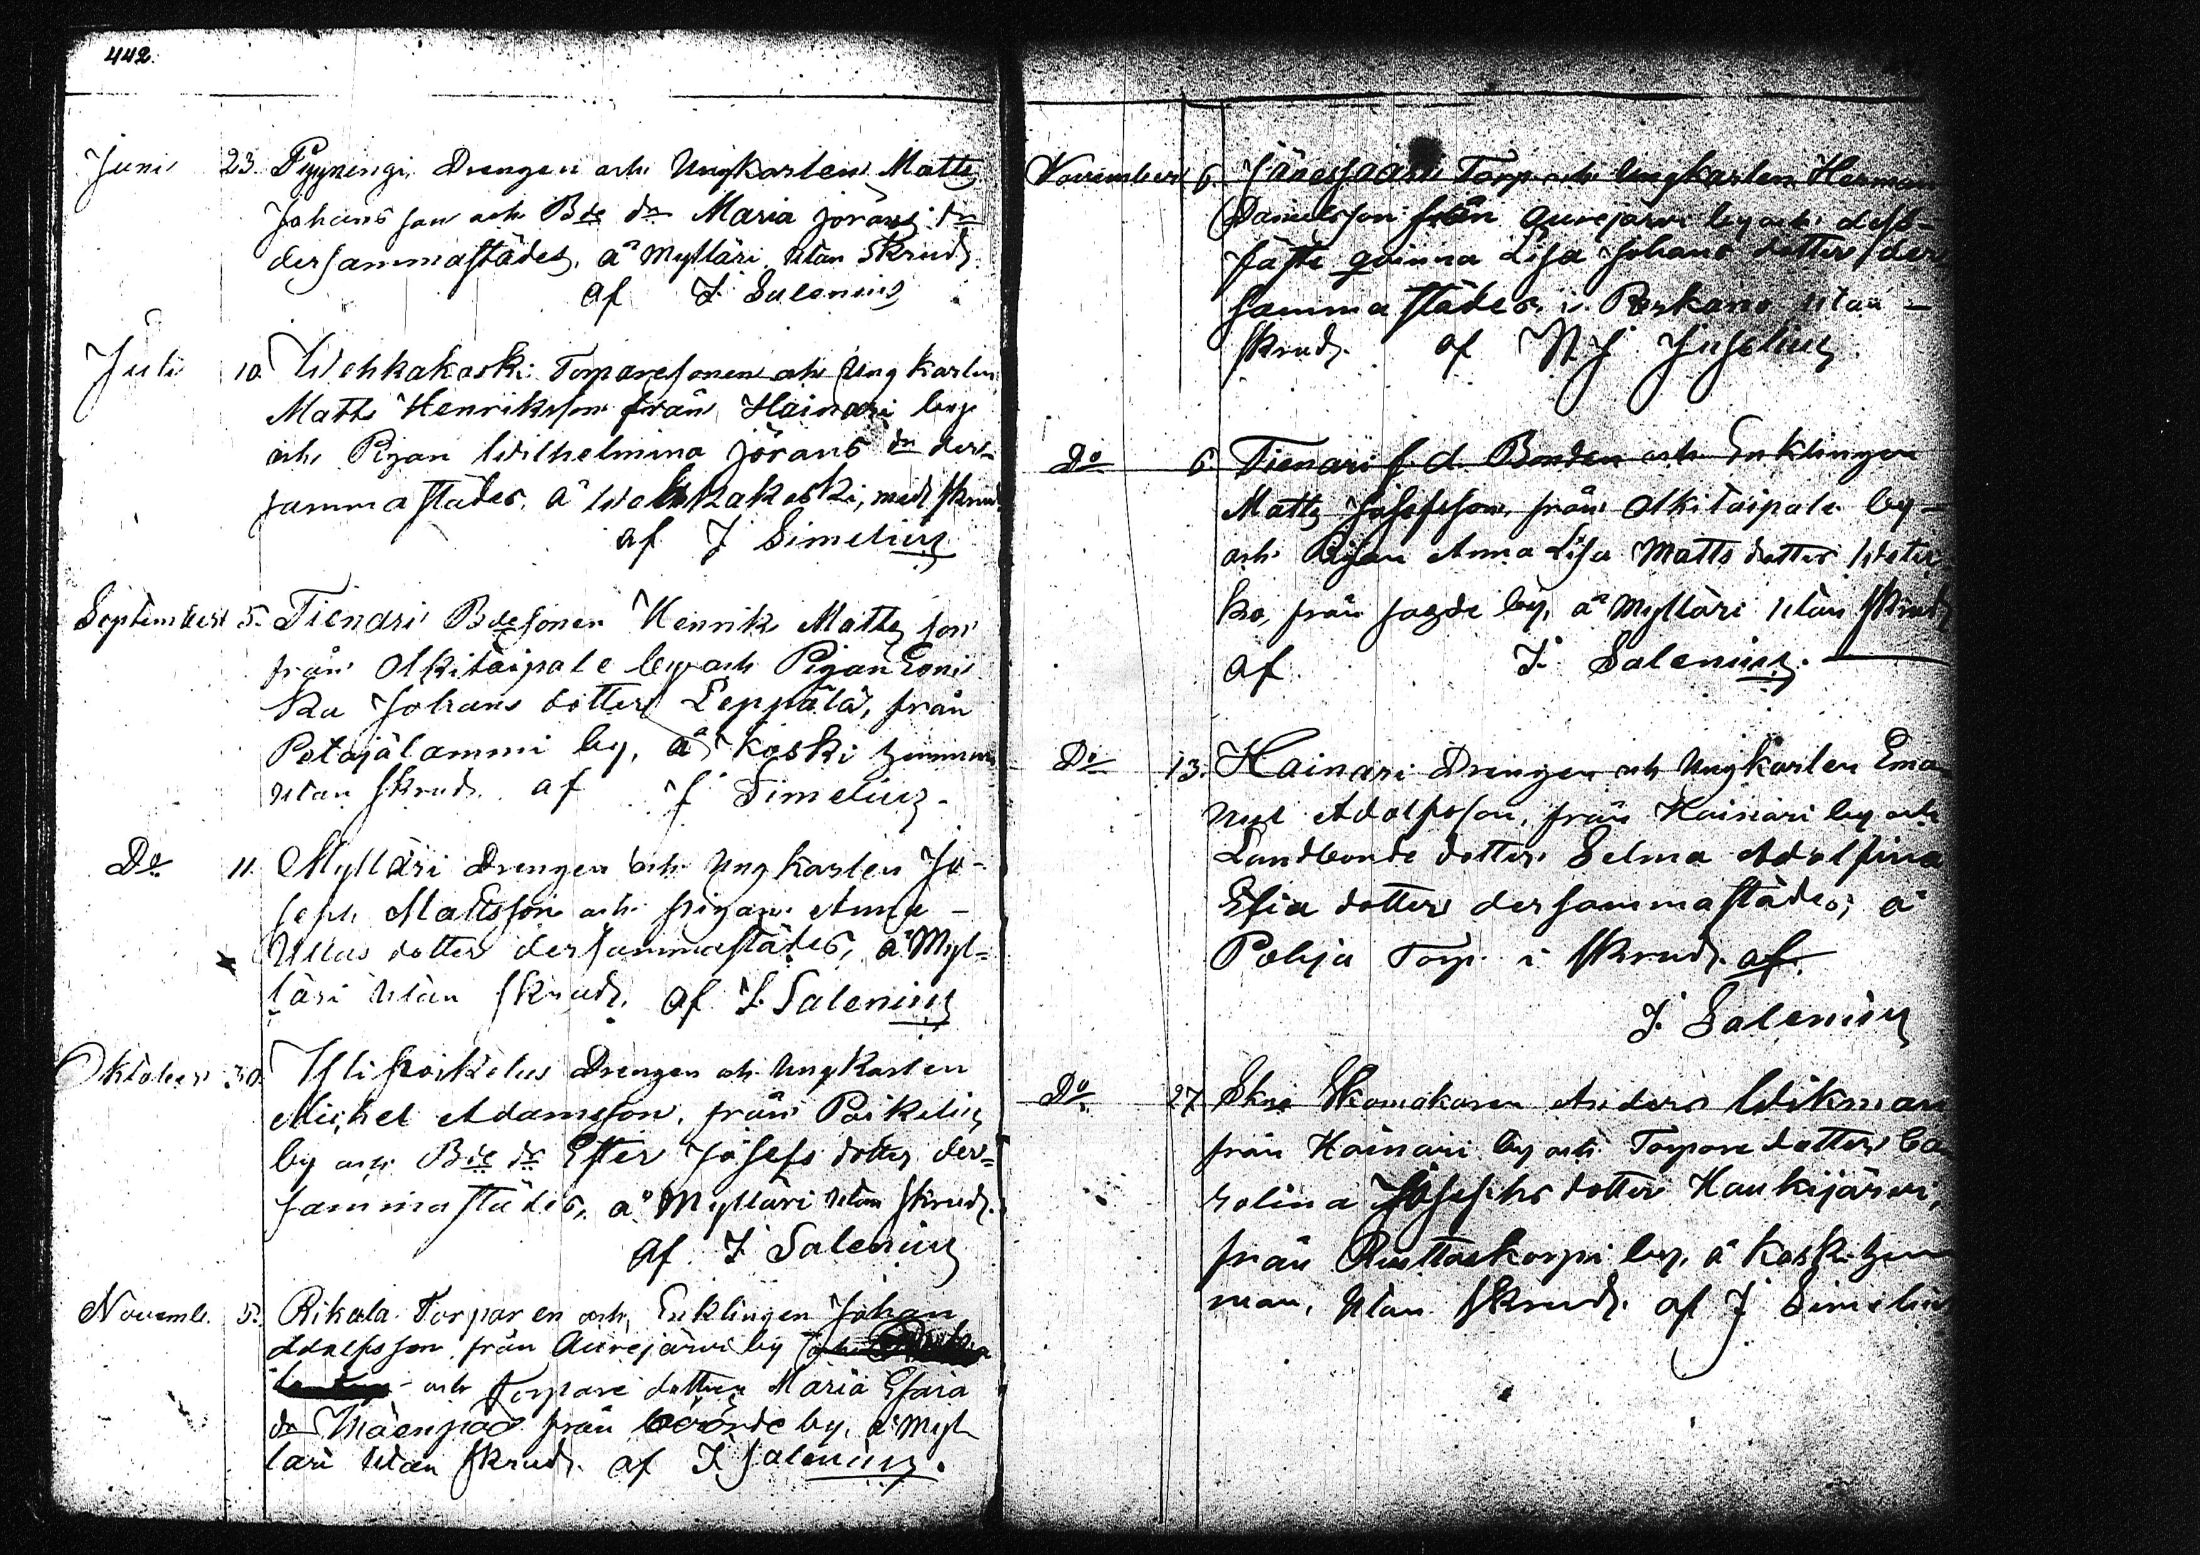 442.
Juni 23. Pyynengi Drengen och Ungkarlen Matts
Johansson och Bde dr Maria Jörans dr
dersammastädes, å Mylläri utan Skrud.
af J. Salenius
Juli 10. Wehkakoski Torparesonen och Ungkarlen
Matts Henriksson från Hainari by
och Pigan Wilhelmina Jörans dr der-
sammastädes, å Wehkakoski, med skrud
af J Simelius
September 5. Tienari Bdesonen Henrik Matts son
från Olkitaipale by och Pigan
Johans dotter Leppälä, från
Petäjälammi by, å Koski
utan skrud. af J Simelius.
Do 11. Mylläri Drengen och Ungkarlen Jo-
seph Mattsson och pigan Anna
Ullas dotter dersammastädes, å Myl-
läri utan skrud. af J. Salenius
Oktober 30. Drengen och Ungkarlen
Michel Adamsson, från
by och Bde dr Ester Josefs dotter der-
sammastädes, å Mylläri utan skrud.
af J Salenius
Novemb. 5. Rikala Torparen och Enklingen Johan
Adolfsson från Aurejärvi by
och Torpare dotter Maria Esaia
dr Mäenpää från by, å Myl-
läri utan skrud. af J Salenius.
November 6. Torp och Ungkarlen Herman
Danielsson från Aurejärvi by och dess
fäste qvinna Lisa Johans dotter der
sammastädes, i Parkano utan –
skrud. af
Do 6. Tienari f. d. Bonden och Enklingen
Matts Josefsson, från Olkitaipale by –
och Pigan Anna Lisa Matts dotter
ko, från by, å Mylläri utan skrud
af J. Salenius.
Do 13. Hainari Drengen och Ungkarlen Ema
nuel Adolfsson, från Hainari by och
Landbonde dotter Selma Adolfina
Esia dotter dersammastädes; å
Pohja Torp. i skrud. af.
J. Salenius
Do 27. Skomakaren Anders Wikman
från Hainari by och Torpare dotter Ca
rolina Josephs dotter Haukijärvi,
från by, å Koski
man, utan skrud. af J Simelius